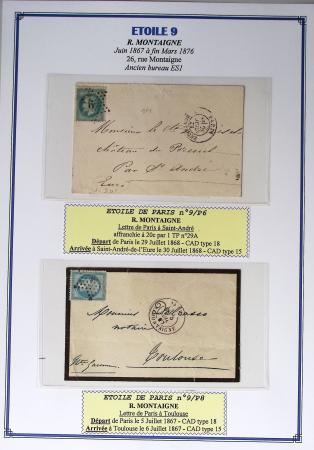 ETOILE 9
R. MONTAIGNE
Juin 1867 à fin Mars 1876
26, rue Montaigne
Ancien bureau ES1
Monsieur le
château de
Par St André
Eure
ETOILE DE PARIS n°9/P6
R. MONTAIGNE
Lettre de Paris à Saint-André
affranchie à 20c par 1 TP n°29A
Départ de Paris le 29 Juillet 1868 - CAD type 18
Arrivée à Saint-André-de-l'Eure le 30 Juillet 1868 - CAD type 15
Monsieur
notaire
Toulouse
ETOILE DE PARIS n°9/P8
R. MONTAIGNE
Lettre de Paris à Toulouse
Départ de Paris le 5 Juillet 1867 - CAD type 18
Arrivée à Toulouse le 6 Juillet 1867 - CAD type 15